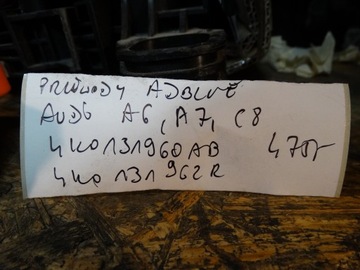 PRZEWODY ADBLUE
AUDG A6, A7, C8
4K0131960AB 470,-
4K0 131962R